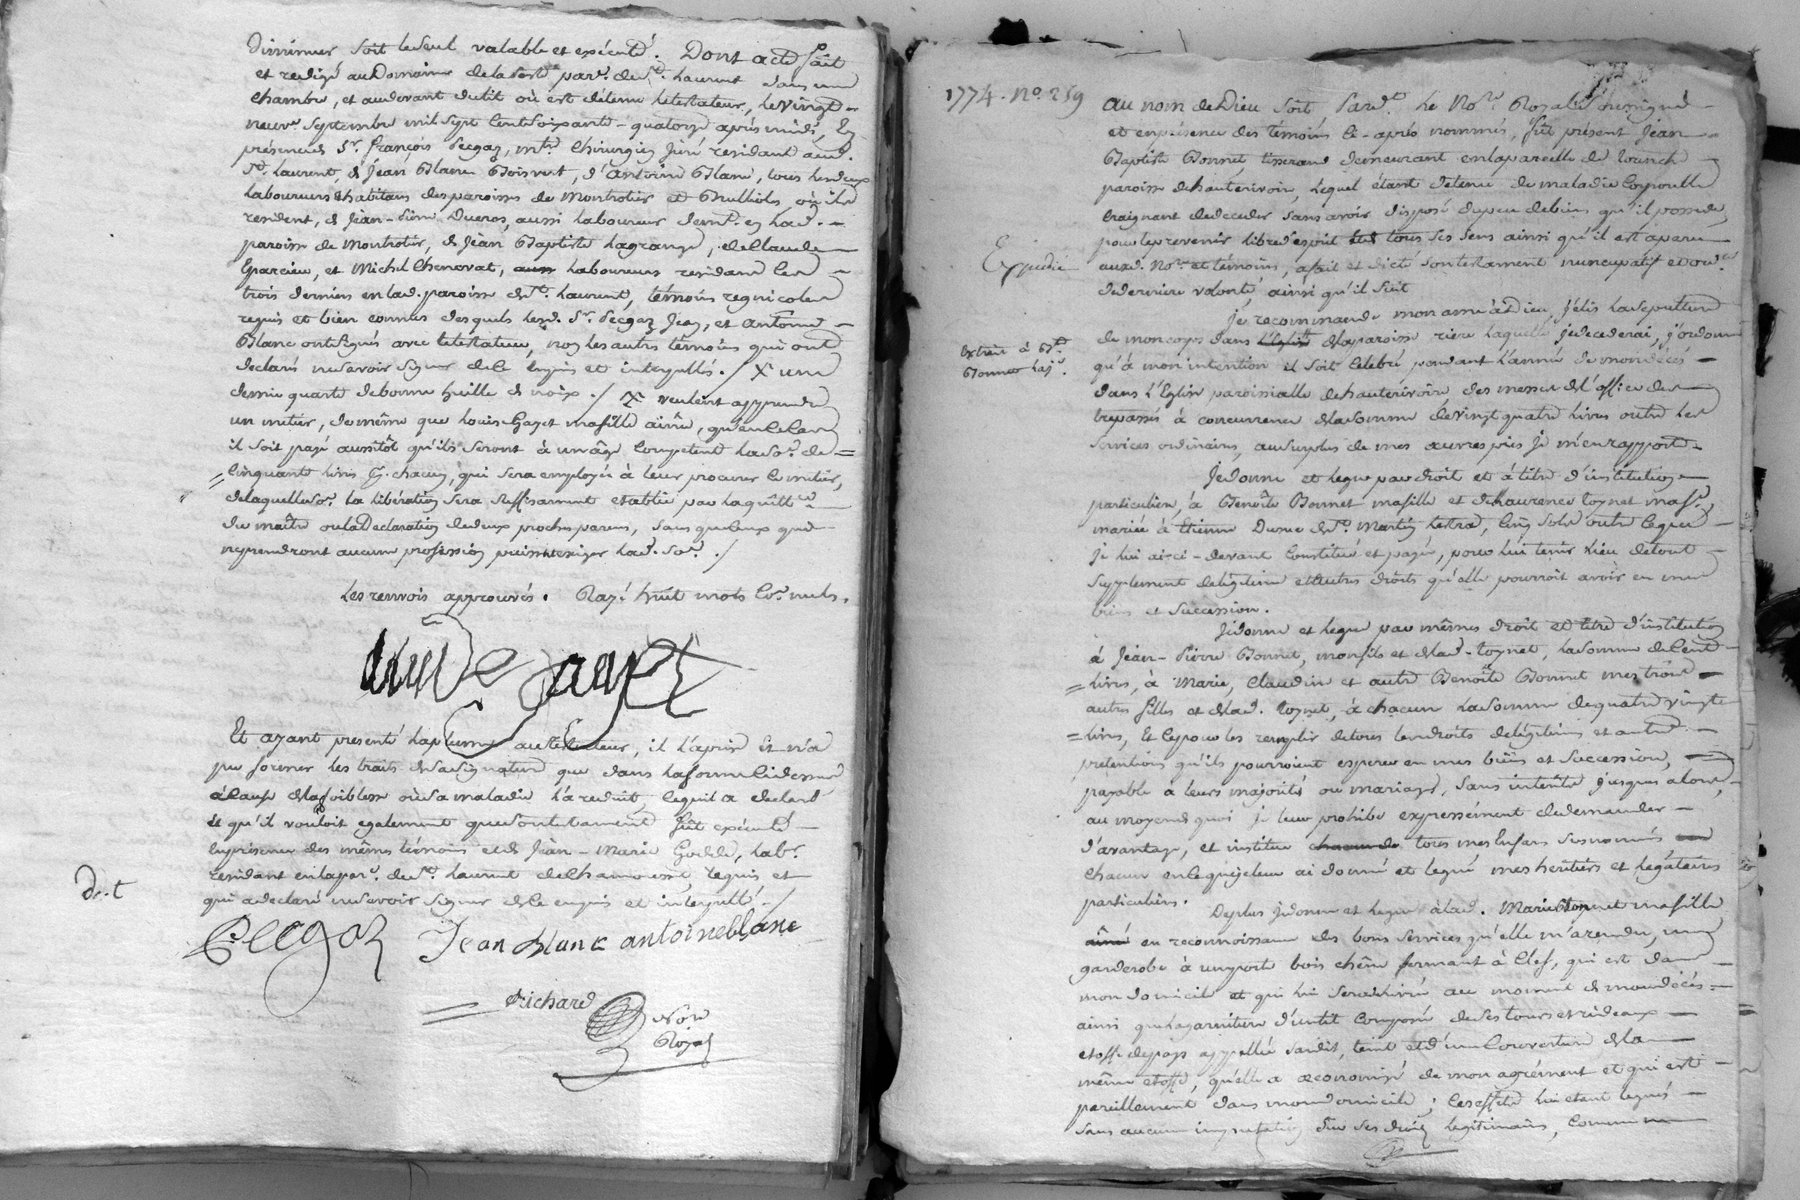 soit le seul valable et exécuté. Dont acte fait
et redigé au Domaine de la par. de St. Laurent dans une
chambre, et audevant du lit où est détenu le testateur, le vingt
neuve. septembre mil sept cent soixante-quatorze après midi, En
présence de Sr. françois Pecgaz, mtre. Chirurgien Juré residant aud.
St. Laurent, de Jean Blanc Boisvert, d'antoine Blanc, tous les deux
laboureurs & habitans des paroisses de Montrotier et Brullioles, où ils
resident, de Jean-Pierre Ducros, aussi laboureur demt. en lad.
paroisse de Montrotier, de Jean Baptiste Lagrange, de Claude
et Michel Chenavat, laboureurs residans les
trois derniers en lad. paroisse de St. Laurent, témoins regnicoles
requis et bien connus desquels lesd. Sr. Pecgaz Jean, et antoine
Blanc ont signés avec le testateur, non les autres témoins qui ont
declaré ne savoir signer de ce enquis et interpellés. / X une
demie quarte de bonne huille de noix. / X veulent apprendre
un métier, de même que Louise Gayet ma fille aînée, qu'en ce cas
il soit payé aussitôt qu'ils seront à un âge competent la so. de
cinquante livres chacun, qui sera employée à leur procurer ce métier,
de laquelle so. la libération sera suffisamment etablie par la quittce.
du maître ou la Declaration de deux proches parens, sans que ceux qui
n'prendront aucune profession puissent exiger lad. so. /
Les renvois approuvés. Rayé huit mots co. nuls.
Et ayant presenté la plume au testateur, il l'a prise et n'a
pu former les traits de sa signature que dans la forme cidessus
à cause de la foiblesse où sa maladie l'a reduit, ce qu'il a declaré
et qu'il vouloit egalement que son testament fut exécuté
en présence des mêmes témoins et de Jean-Marie Godde, labr.
residant en la par. de St. Laurent de Chamousset, requis et
qui a declaré ne savoir signer de ce enquis et interpellé.
D..t
Pecgaz Jean blanc antoine blanc
Richard
Nore
Royal
1774. No. 259
Expedié
Extrait à Bte.
Bonnet
Au nom de Dieu soit Pardt. le Nore. Royal soussigné
et en présence des témoins ci-après nommés, fût présent Jean
Baptiste Bonnet, tisserand demeurant en la parcelle de
paroisse de hauterivoire, lequel étant détenu de maladie corporelle
craignant de deceder sans avoir disposé du peu de biens qu'il possede,
pour le prevenir libre d'esprit tous ses sens ainsi qu'il est aparu
auxd. Nore. et témoins, a fait et dicté son testament nuncupatif et ordce.
de derniere volonté, ainsi qu'il suit
Je recommande mon ame à Dieu, j'élis la sepulture
de mon corps dans l'Eglise de la paroisse riere laquelle je decederai, j'ordonne
qu'à mon intention il soit celebré pendant l'année de mon décés
dans l'Eglise paroissialle de hauterivoire, des messes de l'office des
trepassés à concurrence de la somme de vingt quatre livres outre les
services ordinaires, au surplus de mes œuvres pies je m'en rapporte
Je donne et legue par droit et à titre d'institution
particuliere, à Benoîte Bonnet ma fille et de Laurence Toynet ma fe.
mariée à Etienne de St. Martin Lestra, cinq sols outre ce que
je lui ai ci-devant constitué et payé, pour lui tenir lieu de tout
supplement de legitime et autres droits qu'elle pourroit avoir en mes
biens et succession.
Je donne et legue par mêmes droit et titre d'institution
à Jean-Pierre Bonnet, mon fils et de lad. Toynet, la somme de cent
livres, à Marie, Claudine et autre Benoîte Bonnet mes trois
autres filles et de lad. Toynet, à chacune la somme de quatre vingt
livres, Et ce pour les remplir de tous les droits de legitime et autres
pretentions qu'ils pourroient esperer en mes biens et succession,
payable à leurs majorités ou mariage, sans intérêts jusques alors,
au moyen de quoi je leur prohibe expressément de demander
d'avantage, et institue chacun de tous mes Enfans susnommés
chacun en ce que je leur ai donné et legué mes heritiers et legataires
particuliers. De plus je donne et legue à lad. Marie Bonnet ma fille
ainée en reconnoissance des bons services qu'elle m'a rendu, une
garderobe à une porte bois chêne fermant à clef, qui est dans
mon domicile et qui lui sera delivrée au moment de mon décés
ainsi que la garniture d'un lit composée de ses tours et rideaux
etoffe de pays appellée sardis, teint et d'une couverture de la
même etoffe, qu'elle a œconomisé de mon agrément et qui est
pareillement dans mon domicile; les effets lui etant legués
sans aucune imputation sur ses droits legitimaires, comme